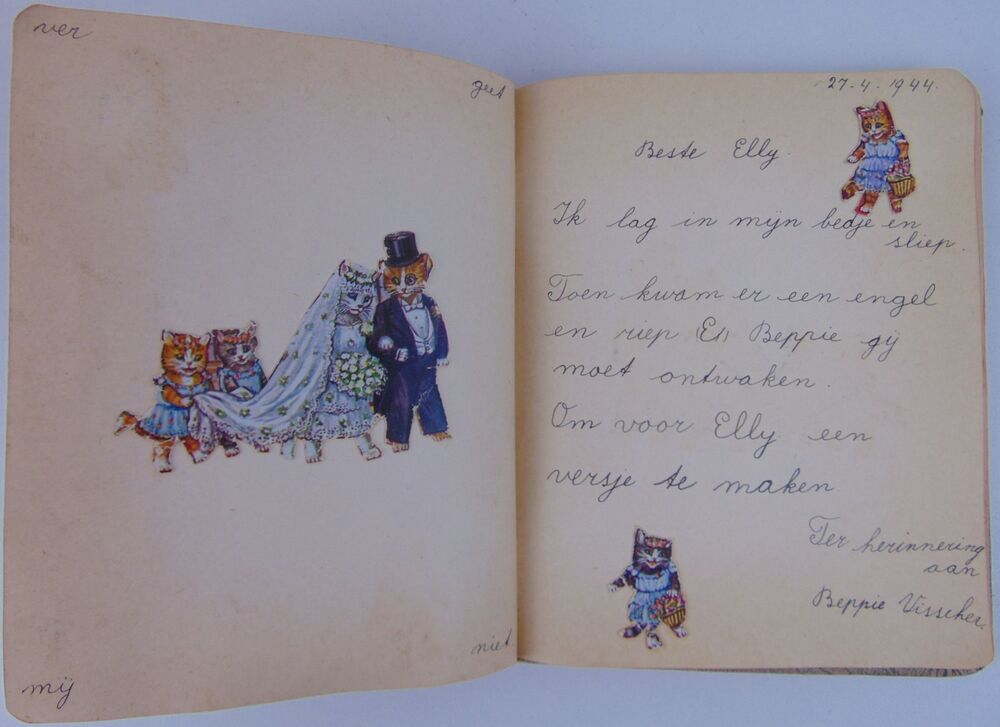 ver
geet
mij
niet
27-4-1944.
Beste Elly.
Ik lag in mijn bedje en
sliep.
Toen kwam er een engel
en riep En Beppie gij
moet ontwaken.
Om voor Elly een
versje te maken
Ter herinnering
aan
Beppie Visscher.